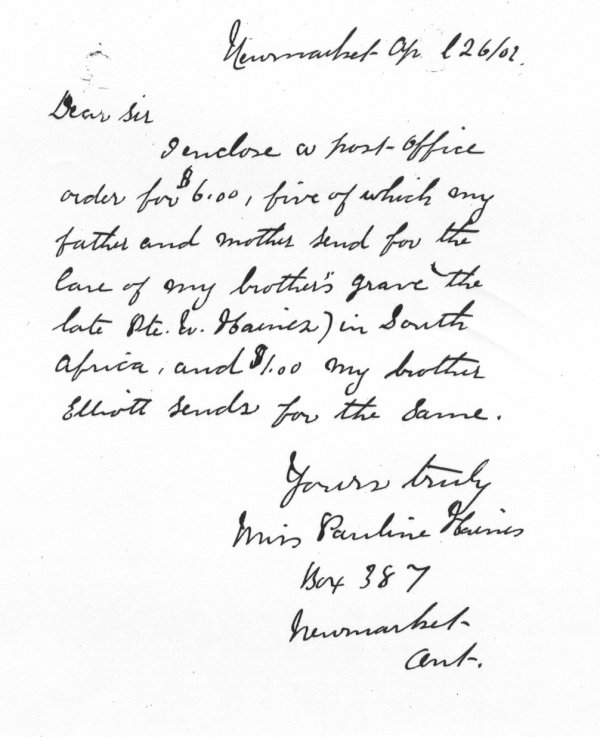 Newmarket Ap l 26/02.
Dear Sir
I enclose a post-office
order for $6.00, five of which my
father and mother send for the
Care of my brother's grave (the
late Pte. W. Haines) in South
Africa, and $1.00 my brother
Elliott sends for the same.
Yours truly
Miss Pauline Haines
Box 387
Newmarket
Ont.